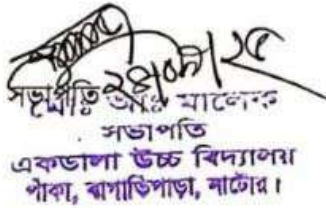 সভাপতি
মোঃ আঃ মালেক
সভাপতি
একডালা উচ্চ বিদ্যালয়
পাঁকা, বাগাতিপাড়া, নাটোর।